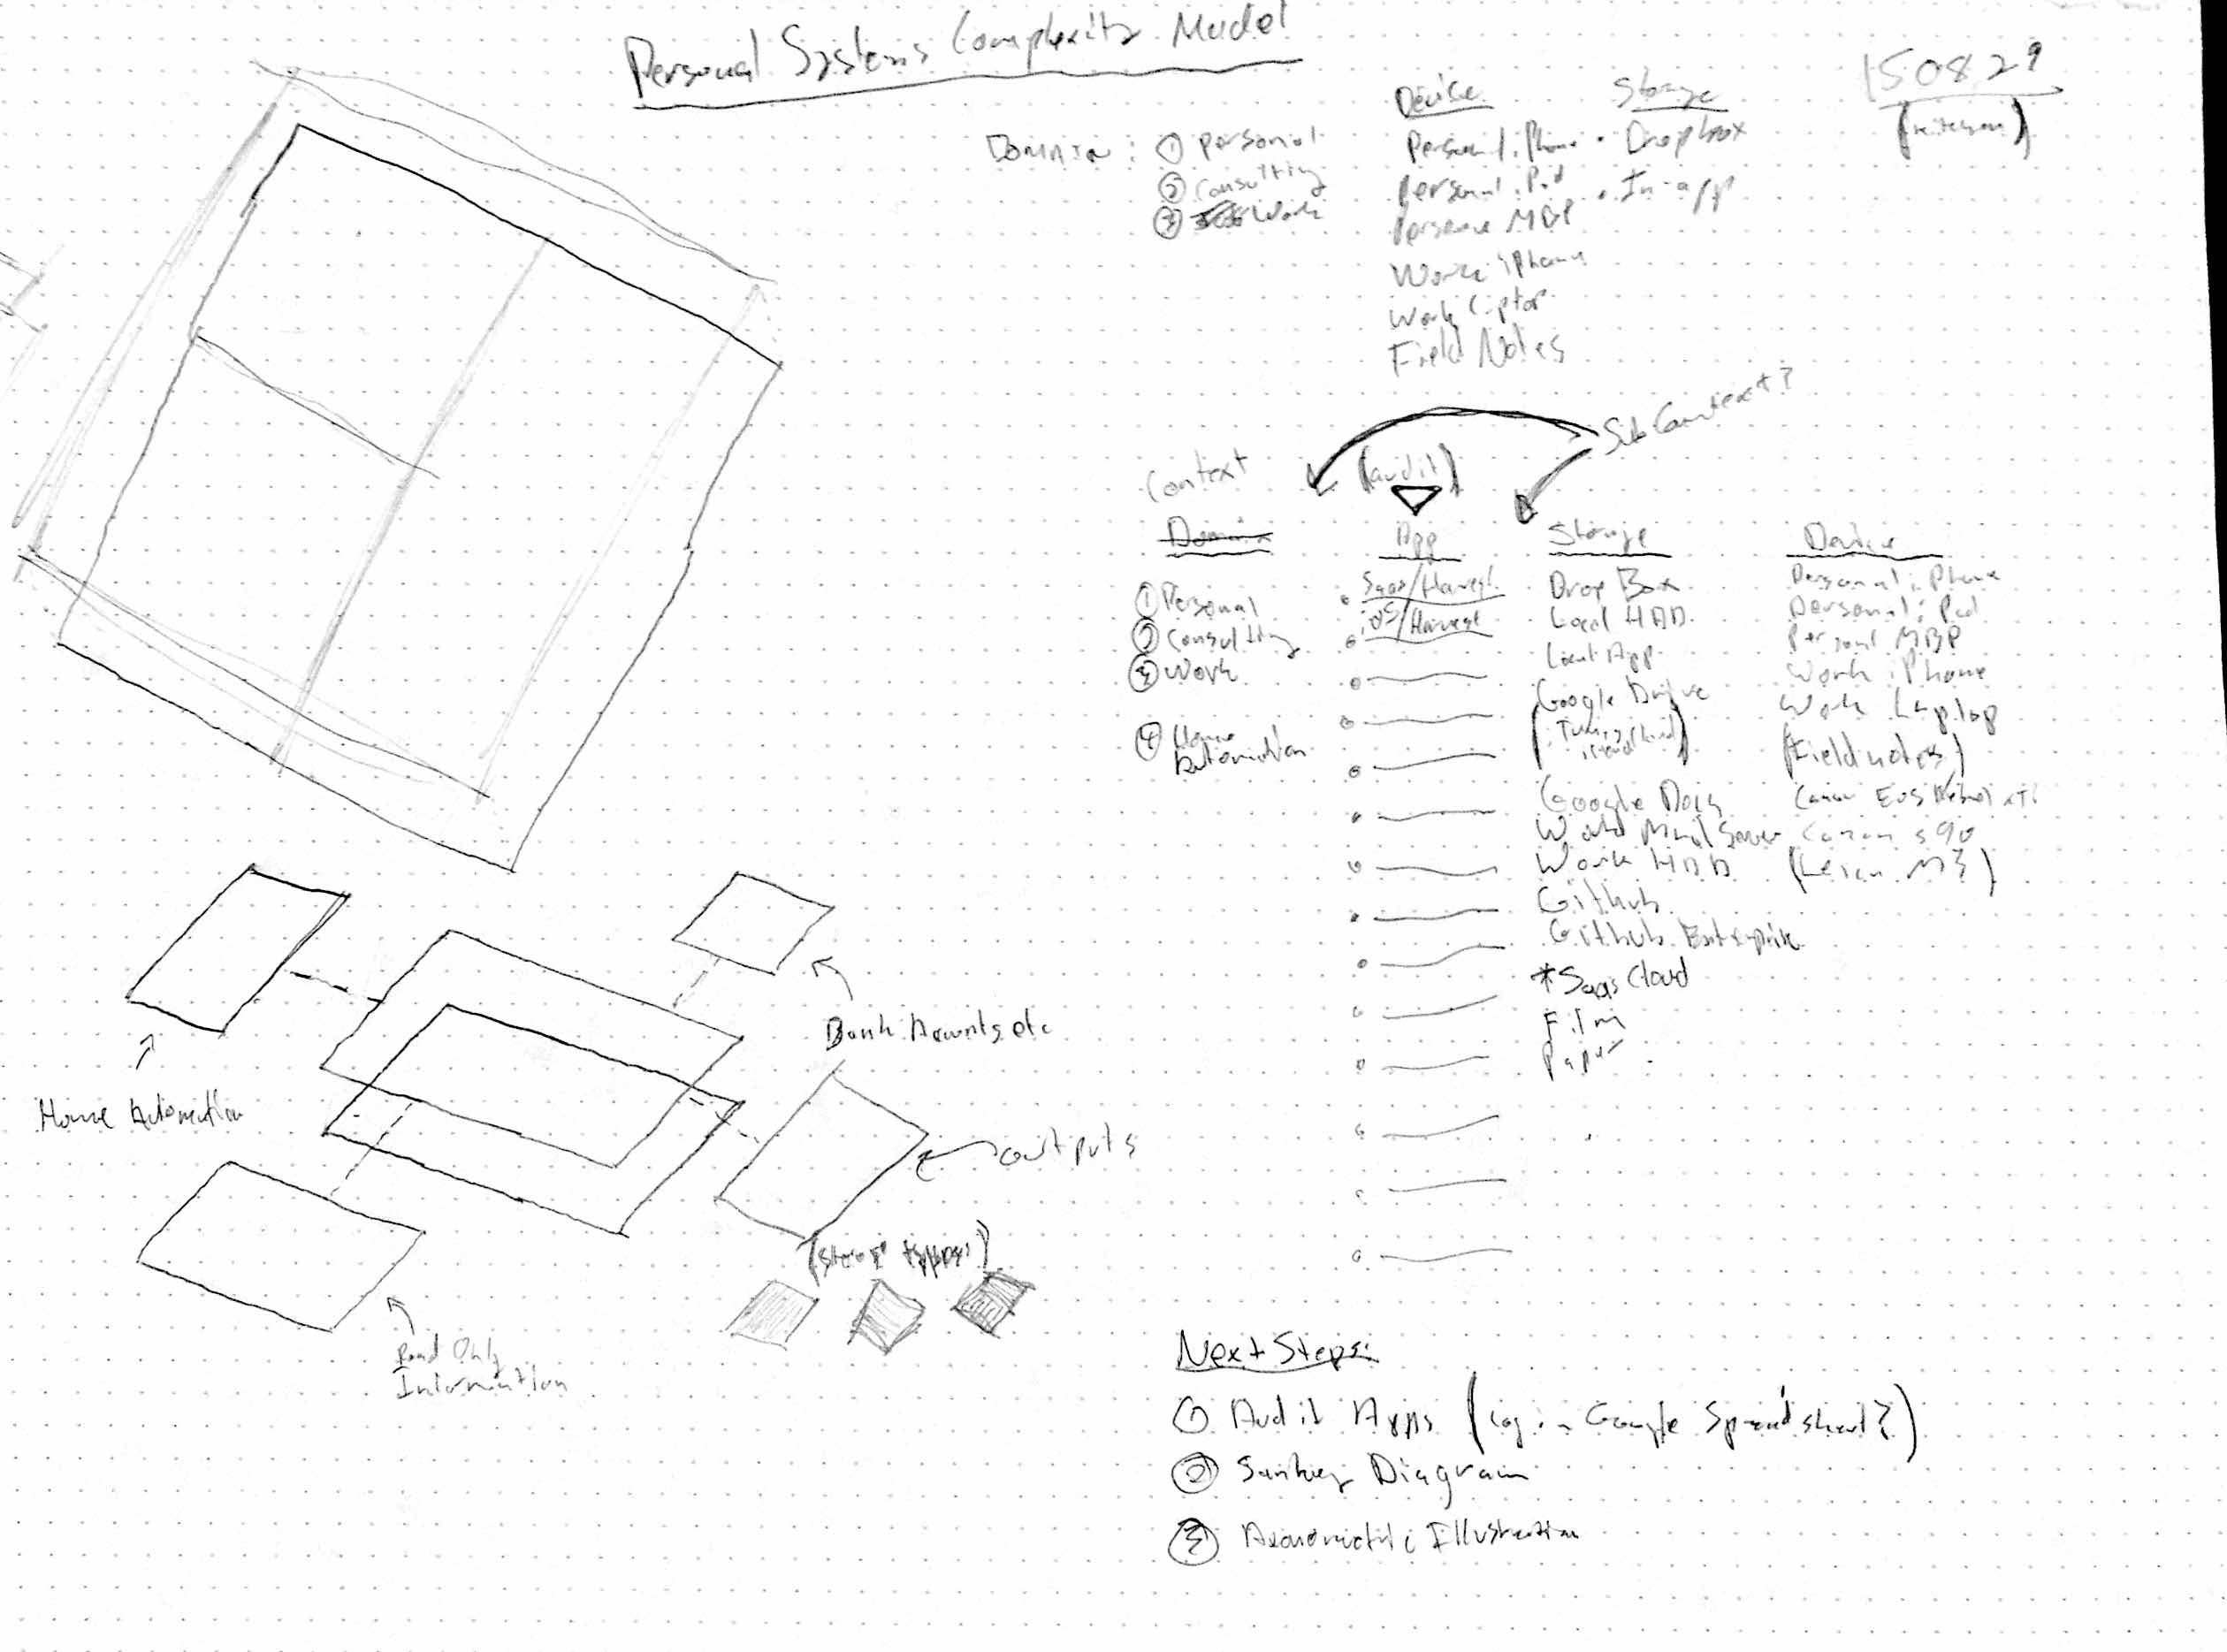 Personal Systems Complexity Model
150829
Domain: ① Personal
② Consulting
③ Work
Device
Personal iPhone
Personal iPad
Personal MBP
Work iPhone
Work Laptop
Field Notes
Storage
• Dropbox
• In-app
Sub Context?
(audit)
Context
Domain
① Personal
② Consulting
③ Work
④ Home
Automation
App
SaaS/Harvest
iOS/Harvest
Storage
Drop Box
Local HDD
Local App
Google Drive
Google Docs
Work Mail Server
Work HDD
Github
Github Enterprise
*SaaS Cloud
Film
Paper
Device
Personal iPhone
Personal iPad
Personal MBP
Work iPhone
Work Laptop
(Field notes)
Canon EOS Rebel xti
Canon s90
(Leica M3)
Bank Accounts etc
Home Automation
outputs
Read Only
Information
Next Steps:
① Audit Apps (Log in Google Spreadsheet?)
② Sankey Diagram
③ Axonometric Illustration